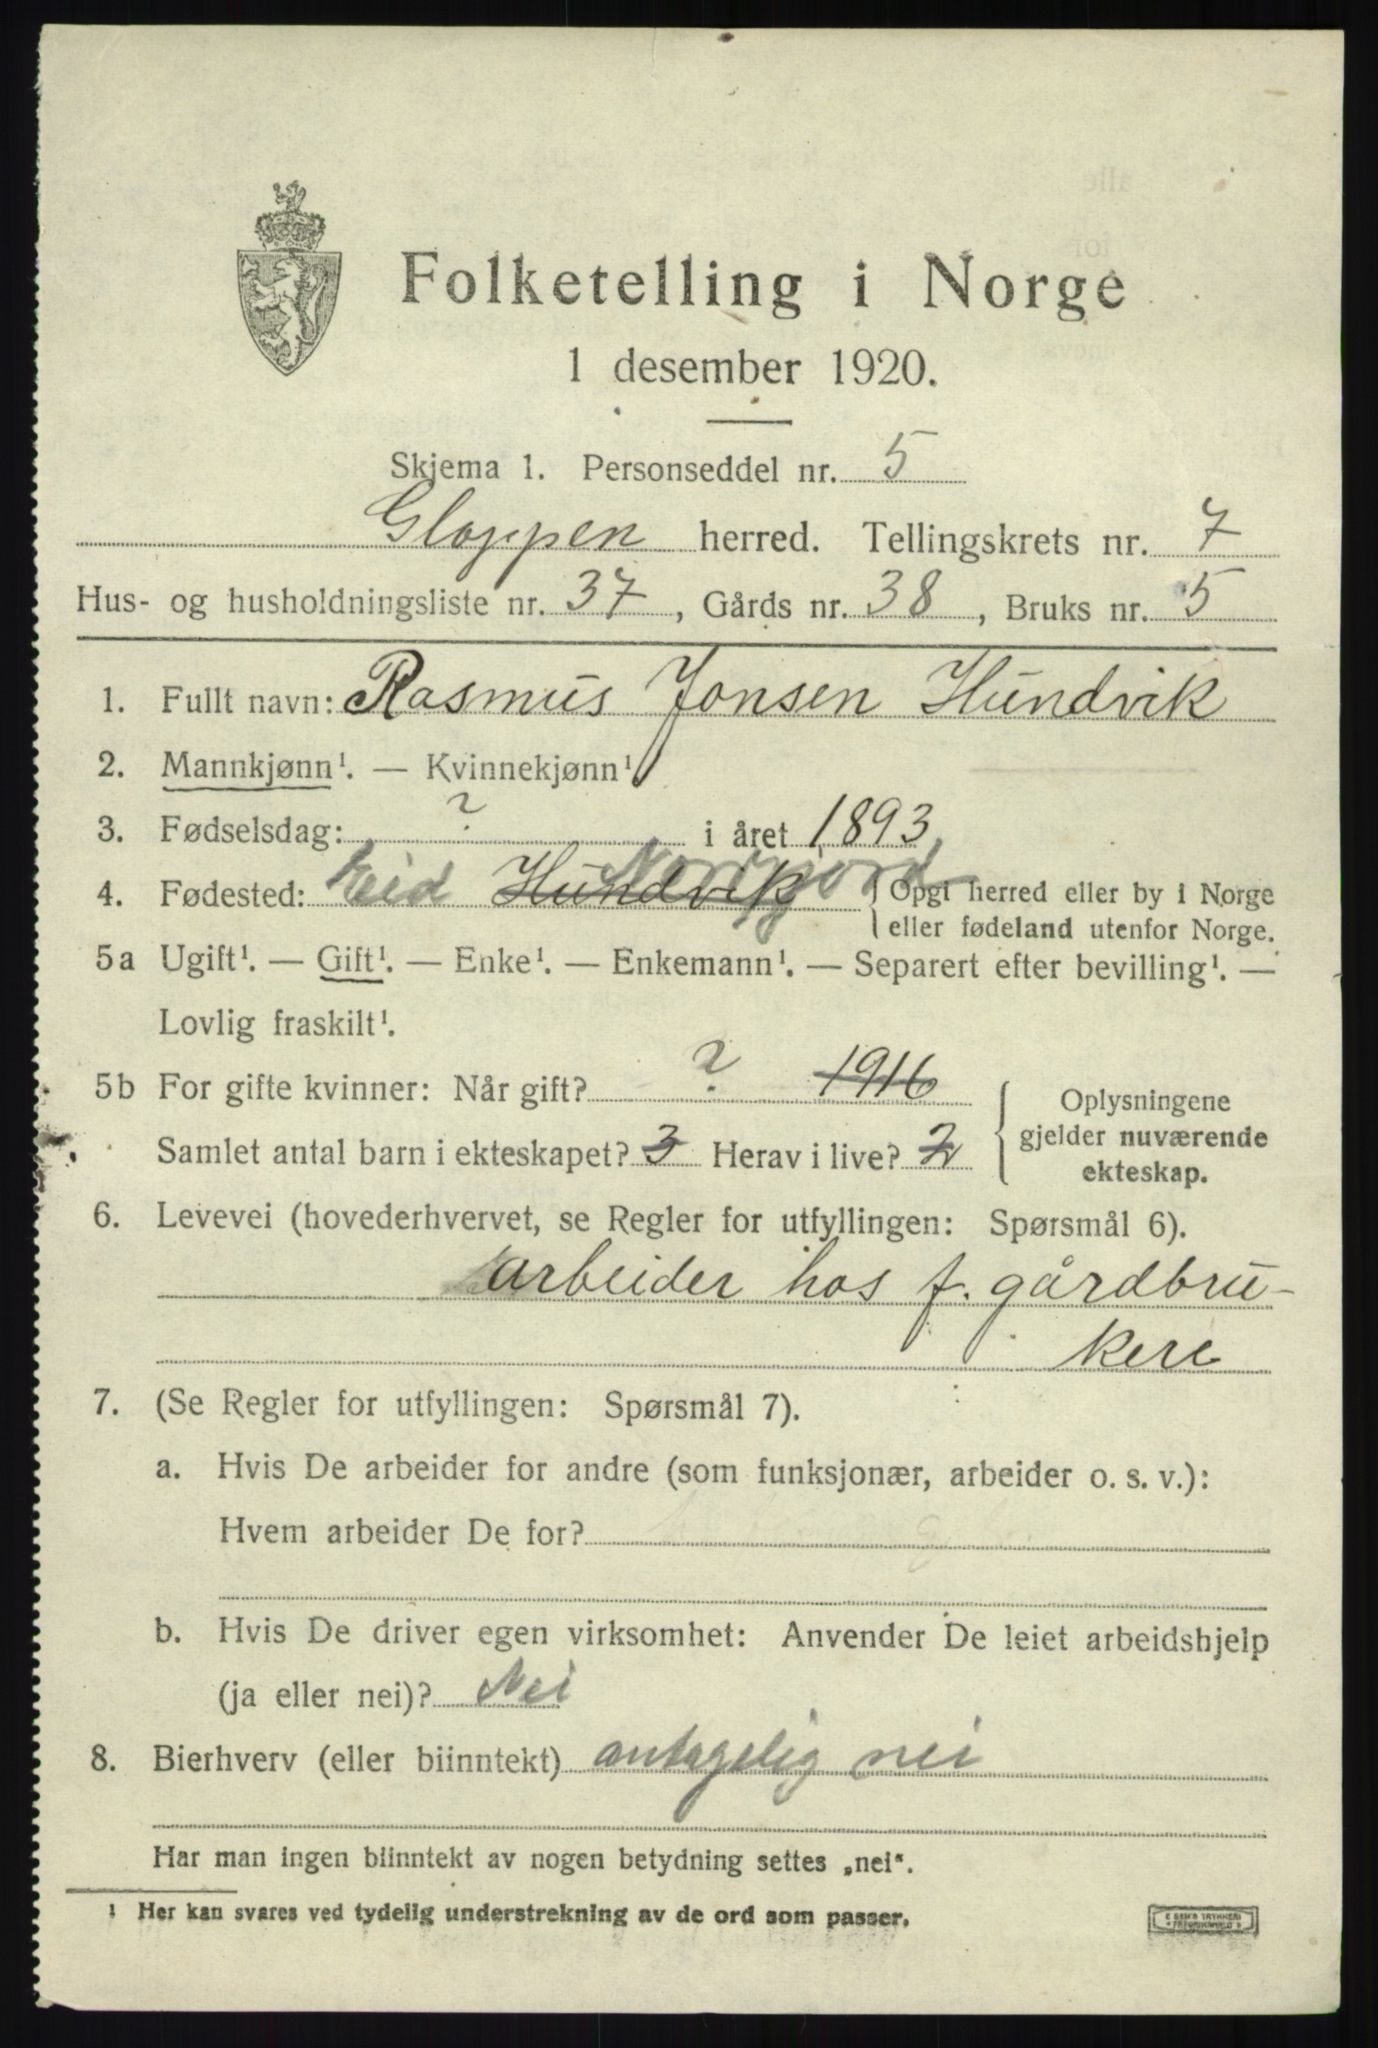 Folketelling i Norge
1 desember 1920.
Skjema 1. Personseddel nr. 5
Gloppen herred. Tellingskrets nr. 7
Hus- og husholdningsliste nr. 37, Gårds nr. 38, Bruks nr. 5
1. Fullt navn: Rasmus Jonsen Hundvik
2. Mannkjønn¹. — Kvinnekjønn¹
3. Fødselsdag: ? i året 1893
4. Fødested: Eid Hundvik Nordfjord Opgi herred eller by i Norge
eller fødeland utenfor Norge.
5a Ugift¹. — Gift¹. — Enke¹. — Enkemann¹. — Separert efter bevilling¹. —
Lovlig fraskilt¹.
5b For gifte kvinner: Når gift? ? 1916 Oplysningene
gjelder nuværende
Samlet antal barn i ekteskapet? 3 Herav i live? 2 ekteskap.
6. Levevei (hovederhvervet, se Regler for utfyllingen: Spørsmål 6).
arbeider hos f. gårdbru-
kere
7. (Se Regler for utfyllingen: Spørsmål 7).
a. Hvis De arbeider for andre (som funksjonær, arbeider o. s. v.):
Hvem arbeider De for?
b. Hvis De driver egen virksomhet: Anvender De leiet arbeidshjelp
(ja eller nei)? Nei
8. Bierhverv (eller biinntekt) antagelig nei
Har man ingen biinntekt av nogen betydning settes „nei“.
1 Her kan svares ved tydelig understrekning av de ord som passer.